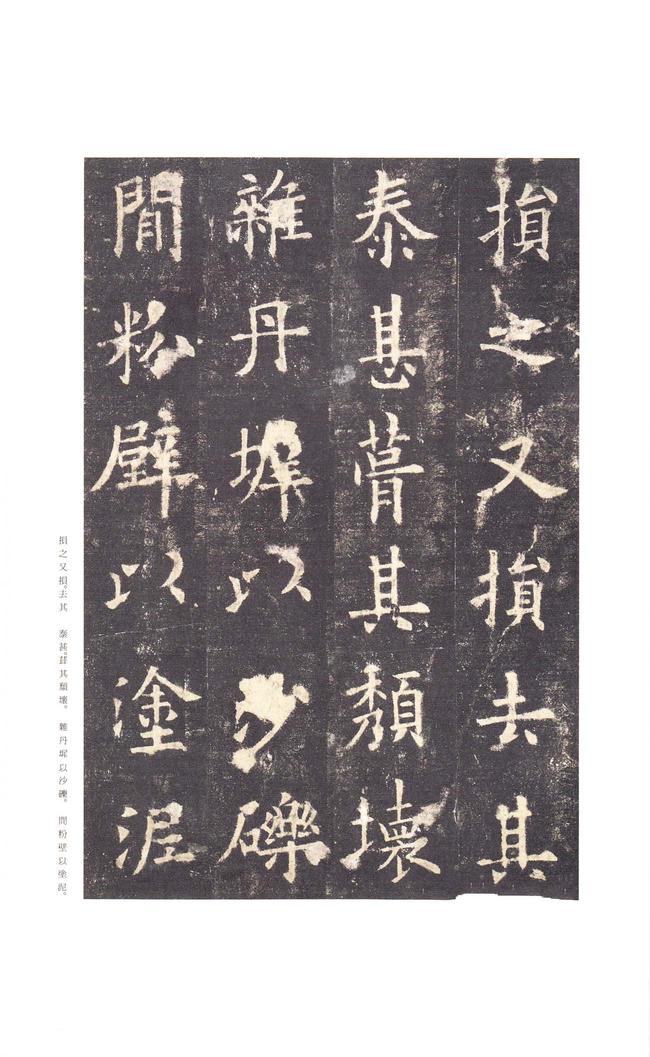 損之又損去其
泰甚葺其頹壞
雜丹墀以沙礫
間粉壁以塗泥
損之又損。去其 泰甚。葺其頹壞。 雜丹墀以沙礫。 間粉壁以塗泥。